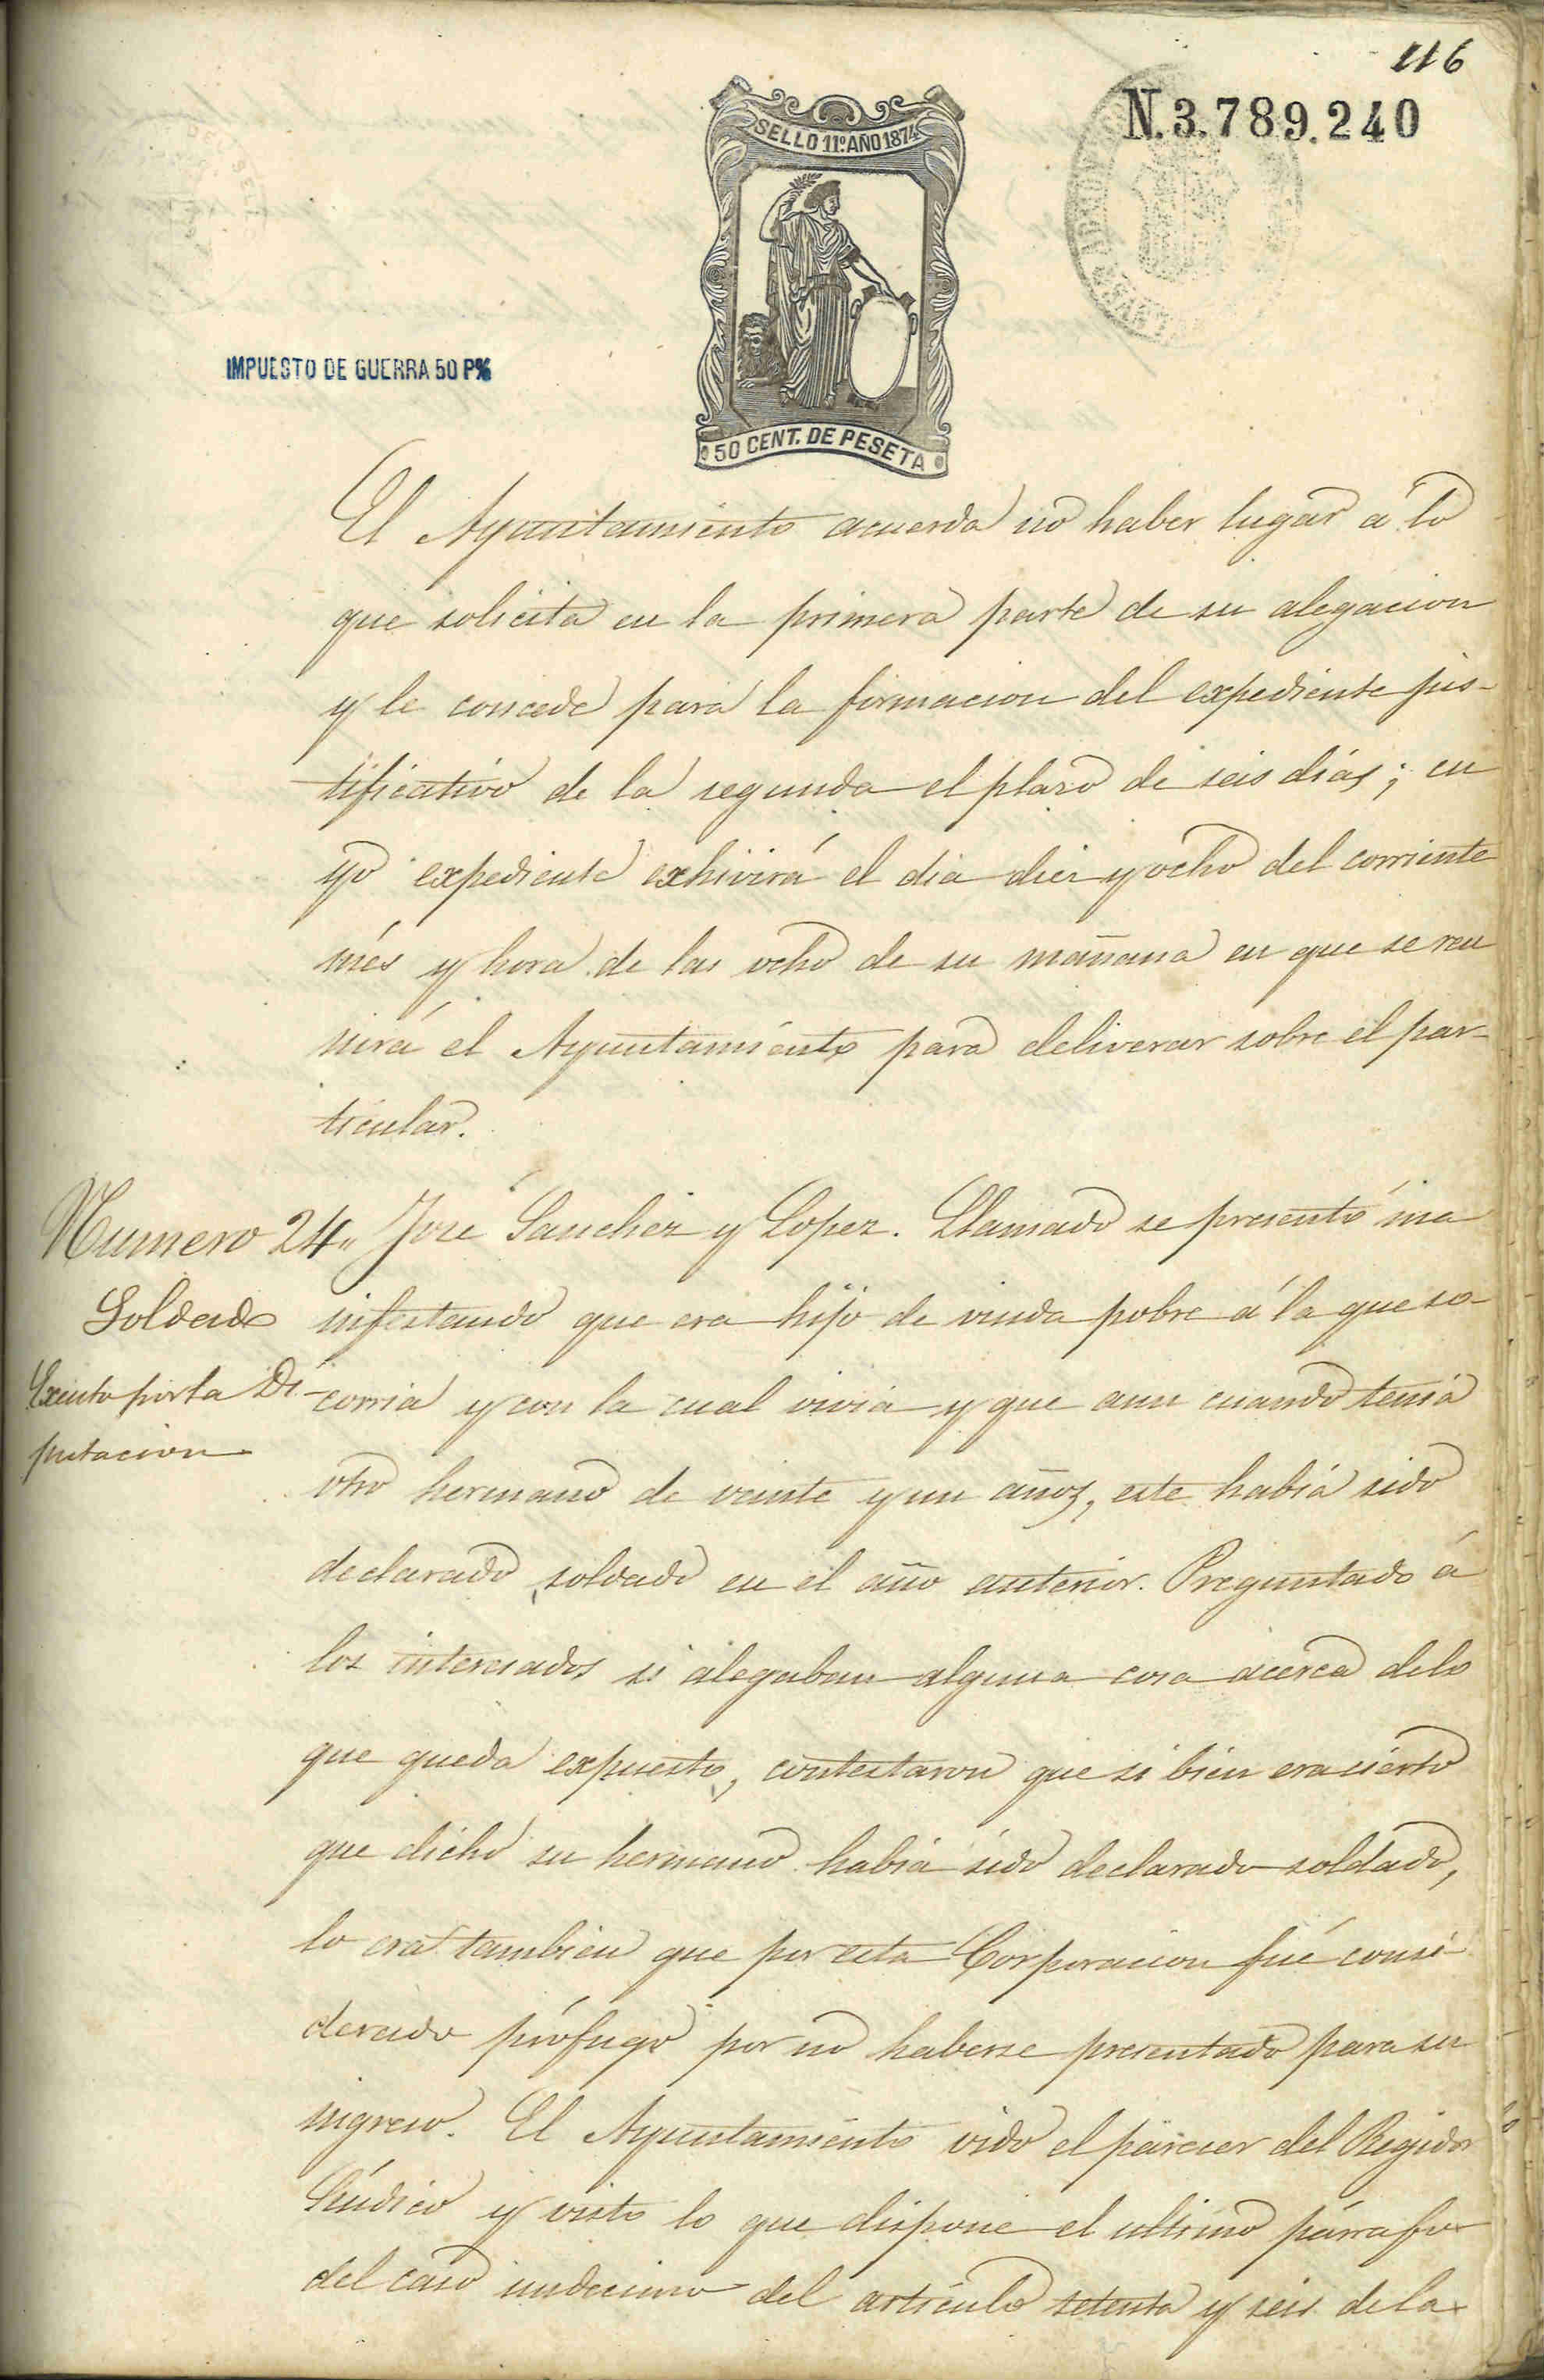 116
N. 3.789.240
SELLO 11º AÑO 1874
IMPUESTO DE GUERRA 50 P%
50 CENT. DE PESETA
El Ayuntamiento acuerda no haber lugar á lo
que solicita en la primera parte de su alegacion
y le concede para la formacion del expediente jus-
tificativo de la segunda el plazo de seis días; cu
yo expediente exhivirá el dia diez y ocho del corriente
més y hora de las ocho de su mañana en que se reu
nirá el Ayuntamiento para deliverar sobre el par-
ticular.
Numero 24. José Sanchez y Lopez. Llamado se presentó ma
Soldado nifestando que era hijo de viuda pobre á la que so-
Exento por la Di- corria y con la cual vivia y que aun cuando tenia
putacion
otro hermano de veinte y un años, este había sido
declarado soldado en el año anterior. Preguntado á
los interesados si alegaban alguna cosa acerca de lo
que queda expuesto, contestaron que si bien era cierto
que dicho su hermano había sido declarado soldado,
lo era tambien que por esta Corporacion fué consi-
derado prófugo por no haberse presentado para su
ingreso. El Ayuntamiento oido el parecer del Regidor
Síndico y visto lo que dispone el ultimo párrafo
del caso undecimo del artículo setenta y seis de la